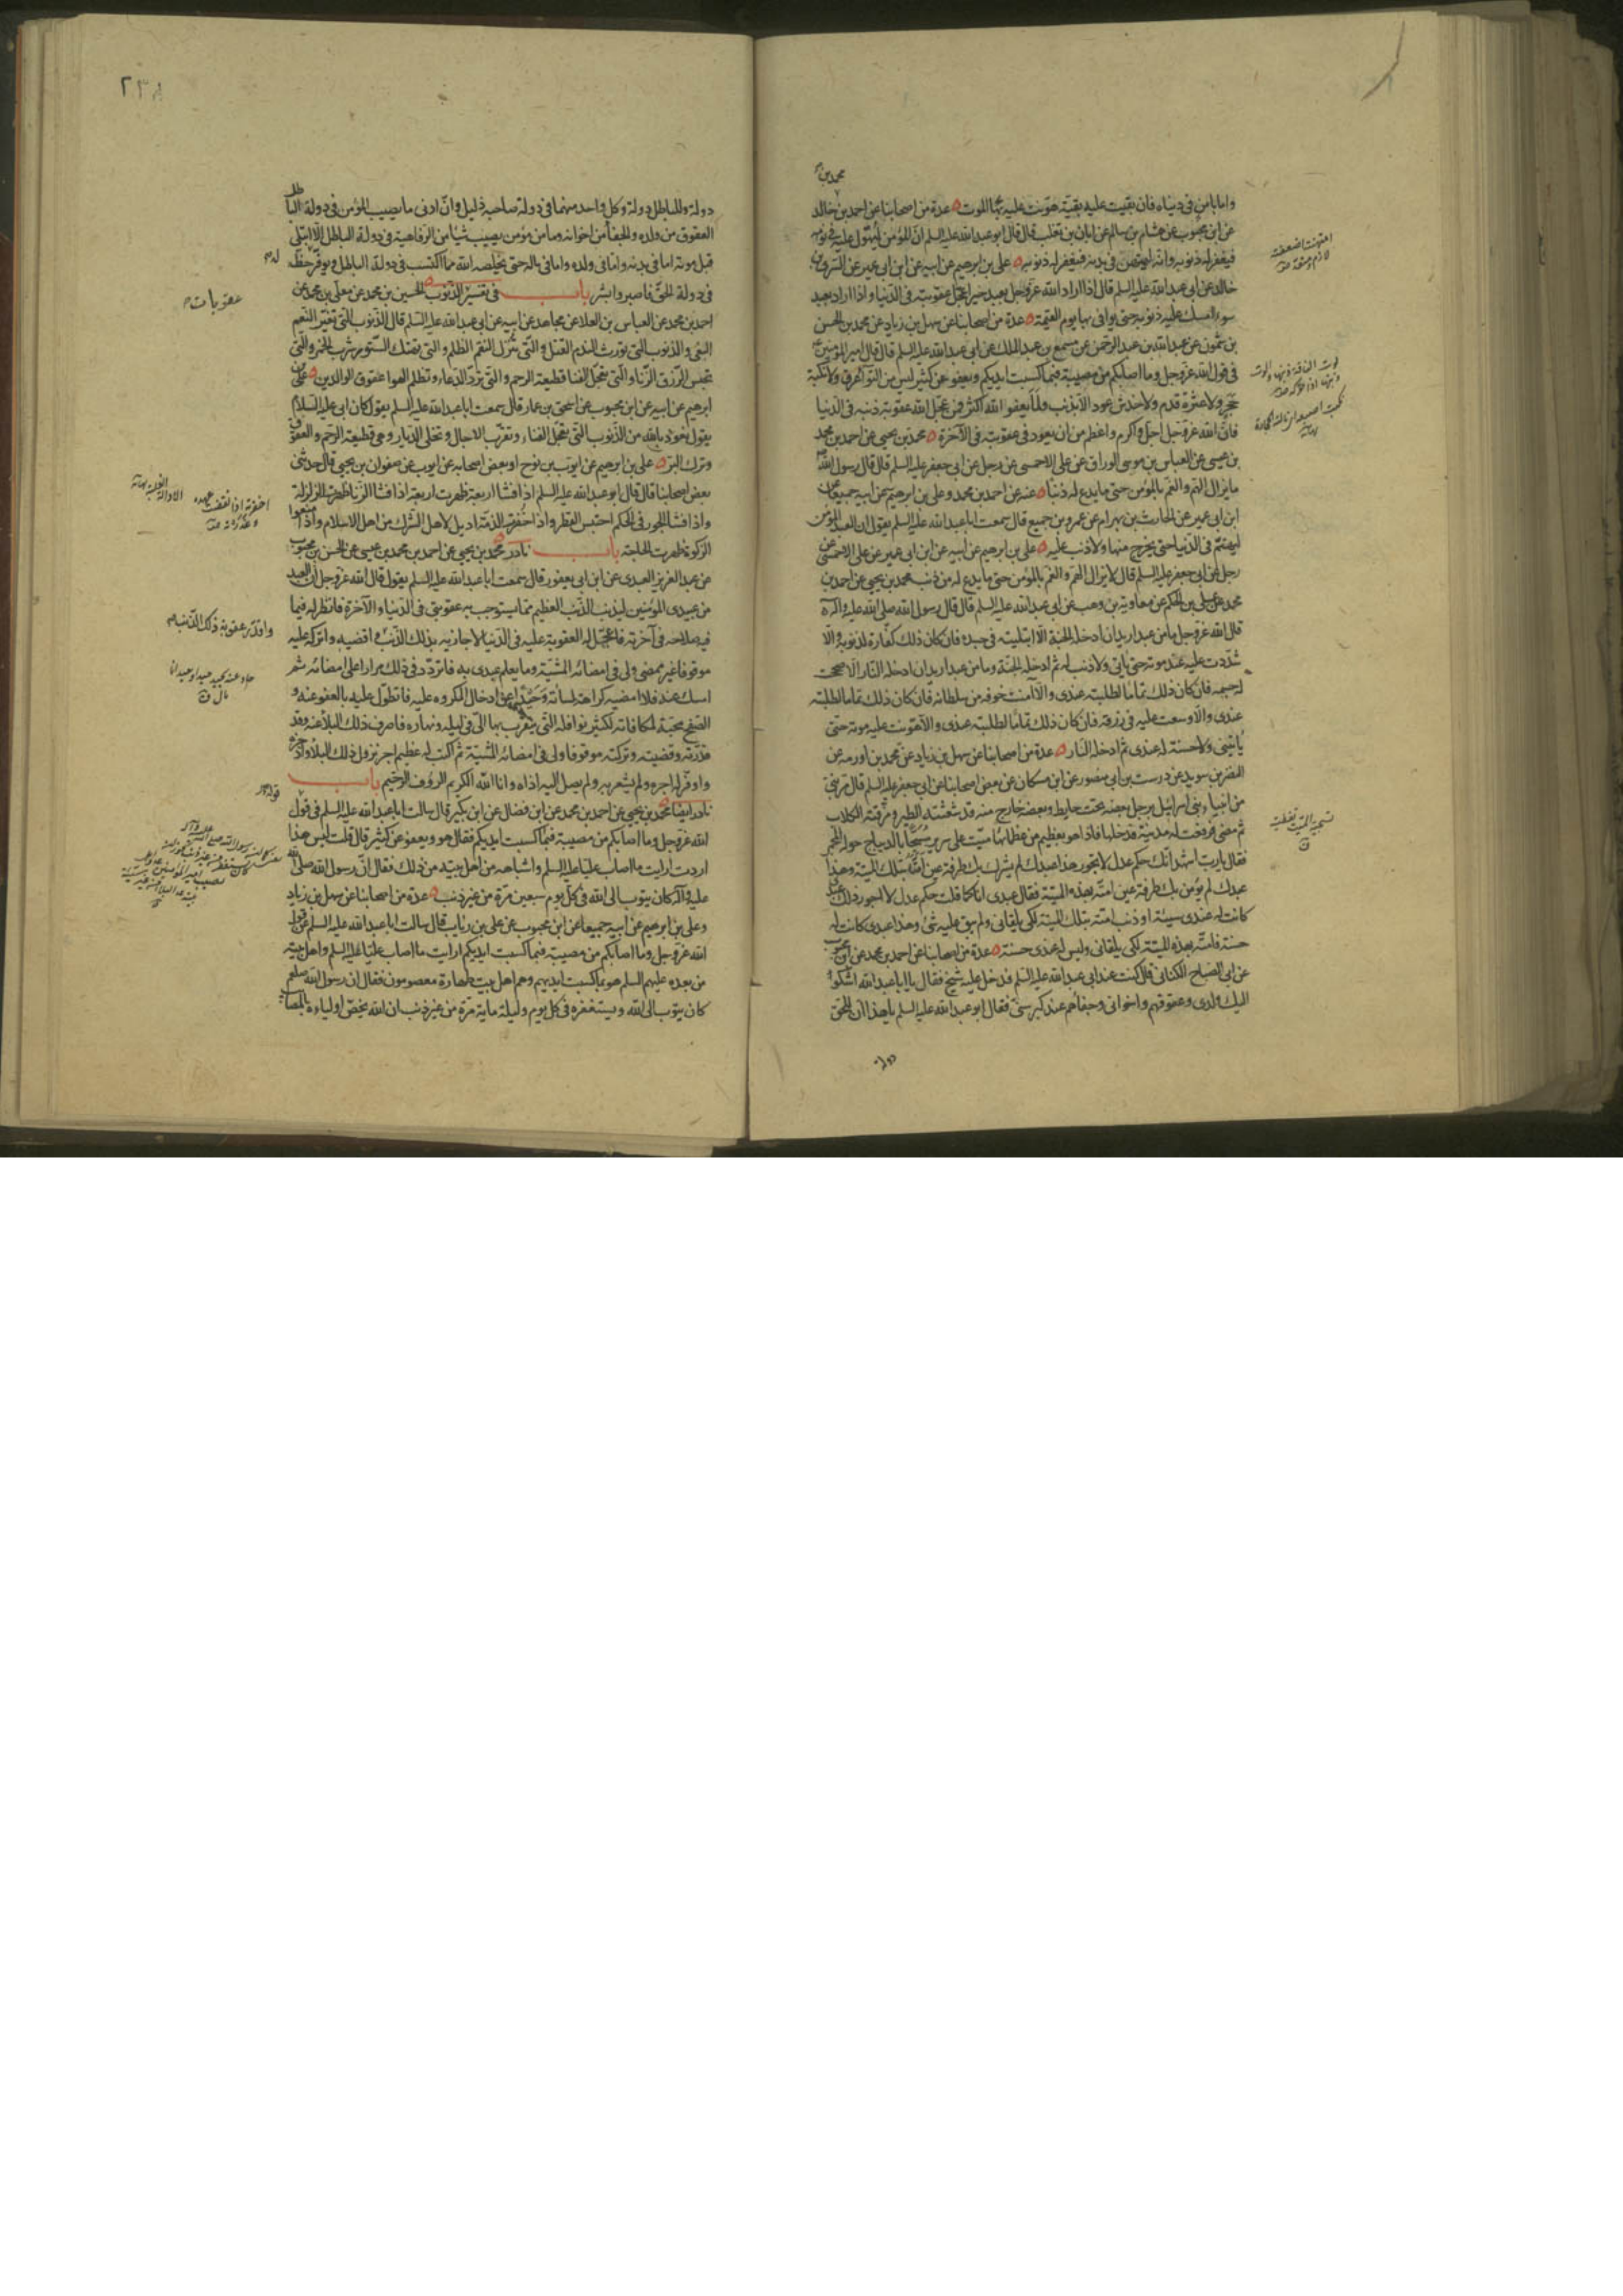 واما بامن في دنياه فان بقيت عليه بقية هونت عليه بها الموت عدة من اصحابنا عن احمد بن خالد
محمد بن
عن ابن محبوب عن هشام بن سالم عن ابان بن تغلب قال قال ابو عبد الله عليه السلم ان المؤمن ليهول عليه في نومه
فيغفر له ذنوبه وانه ليمتهن في بدنه فيغفر له ذنوبه علي بن ابرهيم عن ابيه عن ابن ابي عمير عن السري بن
خالد عن ابي عبد الله عليه السلم قال اذا اراد الله عز وجل بعبد خيرا عجل عقوبته في الدنيا واذا اراد بعبد
سوءا امسك عليه ذنوبه حتى يوافي بها يوم القيمة عدة من اصحابنا عن سهل بن زياد عن محمد بن الحسن
بن شمون عن عبد الله بن عبد الرحمن عن مسمع بن عبد الملك عن ابي عبد الله عليه السلم قال قال امير المؤمنين
في قول الله عز وجل وما اصابكم من مصيبة فبما كسبت ايديكم ويعفو عن كثير ليس من التواء عرق ولا نكبة
حجر ولا عثرة قدم ولا خدش عود الا بذنب ولما يعفو الله اكثر فمن عجل الله عقوبة ذنبه في الدنيا
فان الله عز وجل اجل واكرم واعظم من ان يعود في عقوبته في الآخرة محمد بن يحيى عن احمد بن محمد
بن عيسى عن العباس بن موسى الوراق عن علي الاحمسي عن رجل عن ابي جعفر عليه السلم قال قال رسول الله
ما يزال الهم والغم بالمؤمن حتى ما يدع له ذنبا عنه عن احمد بن محمد وعلي بن ابرهيم عن ابيه جميعا عن
ابن ابي عمير عن الحارث بن بهرام عن عمرو بن جميع قال سمعت ابا عبد الله عليه السلم يقول ان العبد المؤمن
ليهتم في الدنيا حتى يخرج منها ولا ذنب عليه علي بن ابرهيم عن ابيه عن ابن ابي عمير عن علي الاحمسي عن
رجل عن ابي جعفر عليه السلم قال لا يزال الهم والغم بالمؤمن حتى ما يدع له من ذنب محمد بن يحيى عن احمد بن
محمد عن علي بن الحكم عن معاوية بن وهب عن ابي عبد الله عليه السلم قال قال رسول الله صلى الله عليه وآله
قال الله عز وجل ما من عبد اريد ان ادخله الجنة الا ابتليته في جسده فان كان ذلك كفارة لذنوبه والا
شددت عليه عند موته حتى ياتي ولا ذنب له ثم ادخله الجنة وما من عبد اريد ان ادخله النار الا صححت
له جسمه فان كان ذلك تماما لطلبته عندي والا آمنت خوفه من سلطانه فان كان ذلك تماما لطلبته
عندي والا وسعت عليه في رزقه فان كان ذلك تماما لطلبته عندي والا هونت عليه موته حتى
ياتيني ولا حسنة له عندي ثم ادخله النار عدة من اصحابنا عن سهل بن زياد عن محمد بن اورمه عن
النضر بن سويد عن درست بن ابي منصور عن ابن مسكان عن بعض اصحابنا عن ابي جعفر عليه السلم قال مر نبي
من انبياء بني اسرائيل برجل بعضه تحت حايط وبعضه خارج منه قد شعثته الطير ومزقته الكلاب
ثم مضى فرفعت له مدينة فدخلها فاذا هو بعظيم من عظمائها ميت على سرير مسجا بالديباج حوله المجمر
فقال يا رب اشهد انك حكم عدل لا تجور هذا عبدك لم يشرك بك طرفة عين امته بتلك الميتة وهذا
عبدك لم يؤمن بك طرفة عين امته بهذه الميتة فقال عبدي انا كما قلت حكم عدل لا اجور ذلك عبدي
كانت له عندي سيئة او ذنب امته بتلك الميتة لكي يلقاني ولم يبق عليه شئ وهذا عبدي كانت له
حسنة فامته بهذه الميتة لكي يلقاني وليس له عندي حسنة عدة من اصحابنا عن احمد بن محمد عن ابن محبوب
عن ابي الصباح الكناني قال كنت عند ابي عبد الله عليه السلم فدخل عليه شيخ فقال يا ابا عبد الله اشكو
اليك ولدي وعقوقهم واخواني وجفاهم عند كبر سني فقال ابو عبد الله عليه السلم يا هذا ان للحق
دولة
٢٣٨
دولة وللباطل دولة وكل واحد منهما في دولة صاحبه ذليل وان ادنى ما يصيب المؤمن في دولة الباطل
العقوق من ولده والجفا من اخوانه وما من مؤمن يصيب شيئا من الرفاهية في دولة الباطل الا ابتلي
قبل موته اما في بدنه واما في ولده واما في ماله حتى يخلصه الله مما اكتسب في دولة الباطل ويوفر حظه
في دولة الحق فاصبر وابشر باب في تفسير الذنوب الحسين بن محمد عن معلى بن محمد عن
احمد بن محمد عن العباس بن العلا عن مجاهد عن ابيه عن ابي عبد الله عليه السلم قال الذنوب التي تغير النعم
البغي والذنوب التي تورث الندم القتل والتي تنزل النقم الظلم والتي تهتك الستور شرب الخمر والتي
تحبس الرزق الزنا والتي تعجل الفنا قطيعة الرحم والتي ترد الدعاء وتظلم الهوا عقوق الوالدين علي بن
ابرهيم عن ابيه عن ابن محبوب عن اسحق بن عمار قال سمعت ابا عبد الله عليه السلم يقول كان ابي عليه السلام
يقول نعوذ بالله من الذنوب التي تعجل الفناء وتقرب الآجال وتخلي الديار وهي قطيعة الرحم والعقوق
وترك البر علي بن ابرهيم عن ايوب بن نوح او بعض اصحابه عن ايوب عن صفوان بن يحيى قال حدثني
بعض اصحابنا قال قال ابو عبد الله عليه السلم اذا فشا اربعة ظهرت اربعة اذا فشا الزنا ظهرت الزلزلة
واذا فشا الجور في الحكم احتبس القطر واذا خفرت الذمة اديل لاهل الشرك من اهل الاسلام واذا منعوا
الزكوة ظهرت الحاجة باب نادر محمد بن يحيى عن احمد بن محمد بن عيسى عن الحسن بن محبوب
عن عبد العزيز العبدي عن ابن ابي يعفور قال سمعت ابا عبد الله عليه السلم يقول قال الله عز وجل ان العبد
من عبيدي المؤمنين ليذنب الذنب العظيم مما يستوجب به عقوبتي في الدنيا والآخرة فانظر له فيما
فيه صلاحه في آخرته فاعجل له العقوبة عليه في الدنيا لاجازيه بذلك الذنب واقضيه واتركه عليه
موقوفا غير ممضى ولي في امضائه المشية وما يعلم عبدي به فاتردد في ذلك مرارا على امضائه ثم
امسك عنه فلا امضيه كراهة لمسائته وحيدا عن ادخال المكروه عليه فاتطول عليه بالعفو عنه و
الصفح محبة لمكافاته لكثير نوافله التي يتقرب بها الي في ليله ونهاره فاصرف ذلك البلاء عنه وقد
قدرته وقضيته وتركته موقوفا ولي في امضائه المشية ثم اكتب له عظيم اجر نزول ذلك البلاء وادخره
واوفر له اجره ولم يشعر به ولم يصل اليه اذاه وانا الله الكريم الرؤف الرحيم باب
نادر ايضا محمد بن يحيى عن احمد بن محمد عن ابن فضال عن ابن بكير قال سالت ابا عبد الله عليه السلم في قول
الله عز وجل وما اصابكم من مصيبة فبما كسبت ايديكم فقال هو ويعفو عن كثير قال قلت ليس هذا
اردت ارايت ما اصاب عليا عليه السلم واشباهه من اهل بيته من ذلك فقال ان رسول الله صلى الله
عليه وآله كان يتوب الى الله في كل يوم سبعين مرة من غير ذنب عدة من اصحابنا عن سهل بن زياد
وعلي بن ابرهيم عن ابيه جميعا عن ابن محبوب عن علي بن رياب قال سالت ابا عبد الله عليه السلم عن قول
الله عز وجل وما اصابكم من مصيبة فبما كسبت ايديكم ارايت ما اصاب عليا عليه السلم واهل بيته
من بعده عليهم السلم هو بما كسبت ايديهم وهم اهل بيت طهارة معصومون فقال ان رسول الله صلعم
كان يتوب الى الله ويستغفره في كل يوم وليلة ماية مرة من غير ذنب ان الله يخص اولياءه بالمصائب
عقوبات
واقدر عقوبة ذلك الذنب